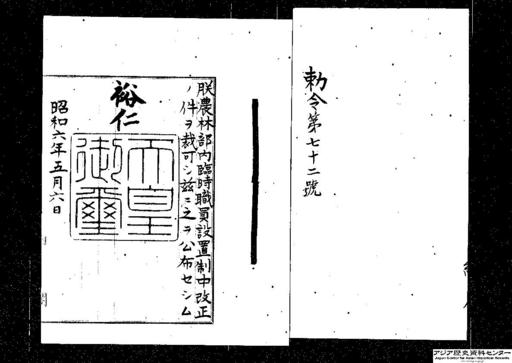 勅令第七十二號
朕農林部内臨時職員設置制中改正
ノ件ヲ裁可シ茲ニ之ヲ公布セシム
裕仁
天皇御璽
昭和六年五月六日
アジア歴史資料センター
Japan Center for Asian Historical Records